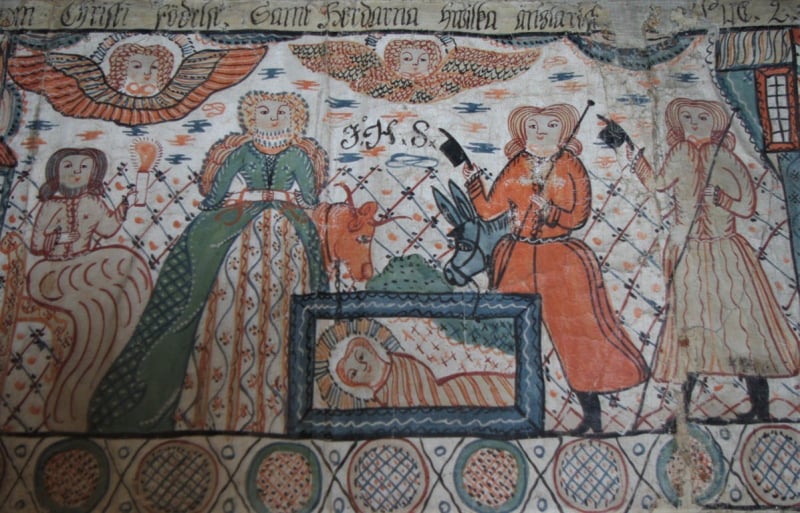 Christi födelse, Samt Herdarna hwilka änglarne
J. H. S.